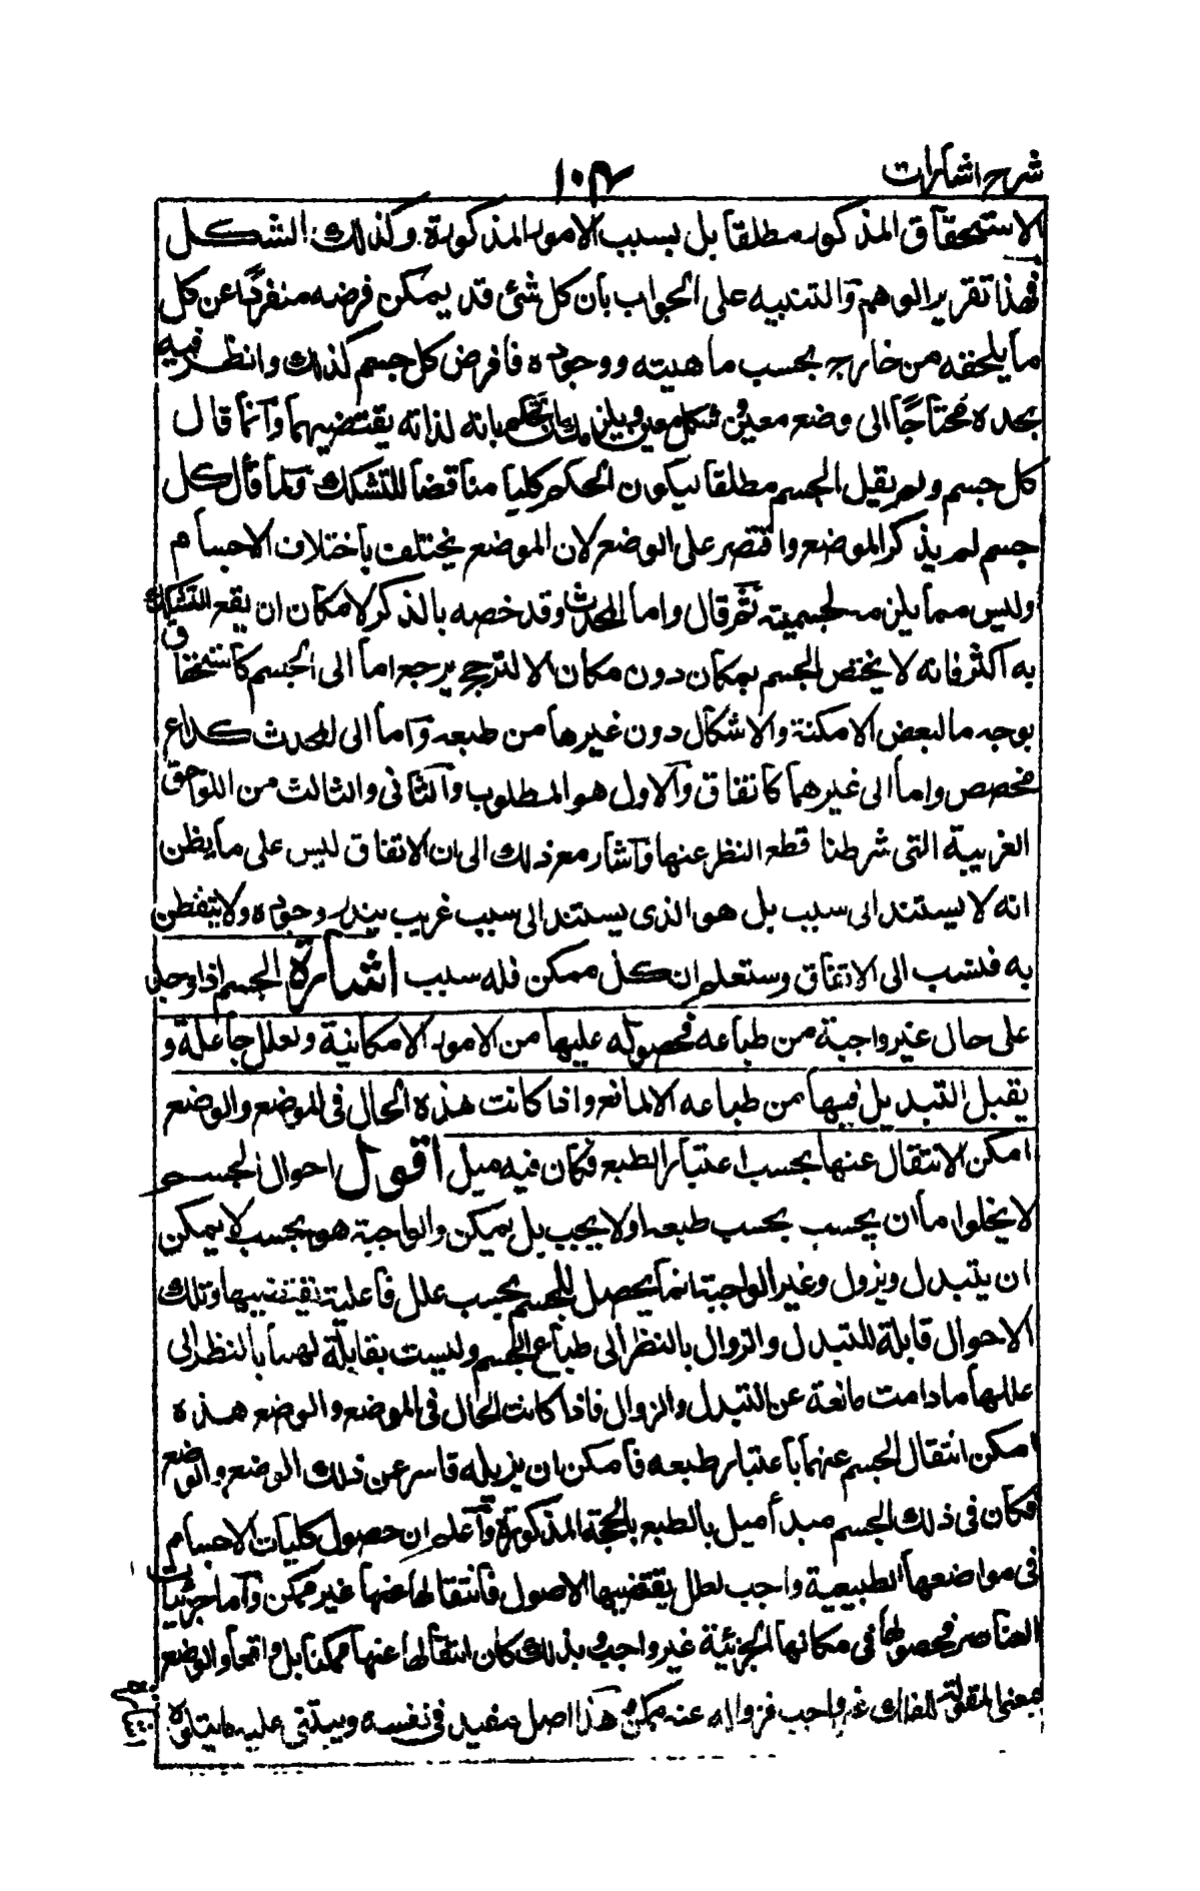 شرح اشارات
١٠٣
الاستحقاق المذكور مطلقا بل بسبب الامور المذكورة وكذلك الشكل
فهذا تقرير الوهم والتنبيه على الجواب بان كل شئ قد يمكن فرضه منفردا عن كل
ما يلحقه من خارج بحسب ماهيته ووجوده فافرض كل جسم كذلك وانظر فيه
تجده محتاجا الى وضع معين وشكل معين بانه لذاته يقتضيهما وانما قال
كل جسم ولم يقل الجسم مطلقا ليكون الحكم كليا مناقضا للتشكك ولما قال كل
جسم لم يذكر الموضع واقتصر على الوضع لان الموضع يختلف باختلاف الاجسام
وليس مما يلزم لجسميته ثم قال واما المحدث وقد خصه بالذكر لامكان ان يقع التشكيك
به اكثر فانه لا يختص الجسم بمكان دون مكان الا لترجح يرجع اما الى الجسم كاستحقاق
بوجه ما لبعض الامكنة والاشكال دون غيرها من طبعه واما الى المحدث كداع
مخصص واما الى غيرهما كاتفاق والاول هو المطلوب والثانى والثالث من اللواحق
الغريبة التى شرطنا قطع النظر عنها واشار مع ذلك الى ان الاتفاق ليس على ما يظن
انه لا يستند الى سبب بل هو الذى يستند الى سبب غريب يندر وجوده ولا يتفطن
به فنسب الى الاتفاق وستعلم ان كل ممكن فله سبب اشارة الجسم اذا وجد
على حال غير واجبة من طباعه فحصوله عليها من الامور الامكانية ولعلل جاعلة و
يقبل التبديل فيها من طباعه الا لمانع واذا كانت هذه الحال فى الموضع والوضع
امكن الانتقال عنها بحسب اعتبار الطبع فكان فيه ميل اقول احوال الجسم
لا يخلوا ما ان يجسب بحسب طبعه اولا يجب بل يمكن والواجبة هو بحسب لا يمكن
ان يتبدل ويزول وغير الواجبة انما يحصل للجسم بحسب علل فاعلية تقتضيها وتلك
الاحوال قابلة للتبدل والزوال بالنظر الى طباع الجسم وليست بقابلة لهما بالنظر الى
عللها ما دامت مانعة عن التبدل والزوال فاذا كانت الحال فى الموضع والوضع هذه
امكن انتقال الجسم عنهما باعتبار طبعه فامكن ان يزيله قاسر عن ذلك الوضع والوضع
فكان فى ذلك الجسم مبدأ ميل بالطبع بالحجة المذكورة واعلم ان حصول كليات الاجسام
فى مواضعها الطبيعية واجب لعلل يقتضيها الاصول فانتقالها عنها غير ممكن واما جزئيات
العناصر فحصولها فى مكانها الجزئية غير واجب ولذلك كان انتقالها عنها ممكنا بل واقعا والوضع
بمعنى المقولة للفلك غير واجب فزواله عنه ممكن هذا اصل مفيد فى نفسه ويبتنى عليه ما يتلوه